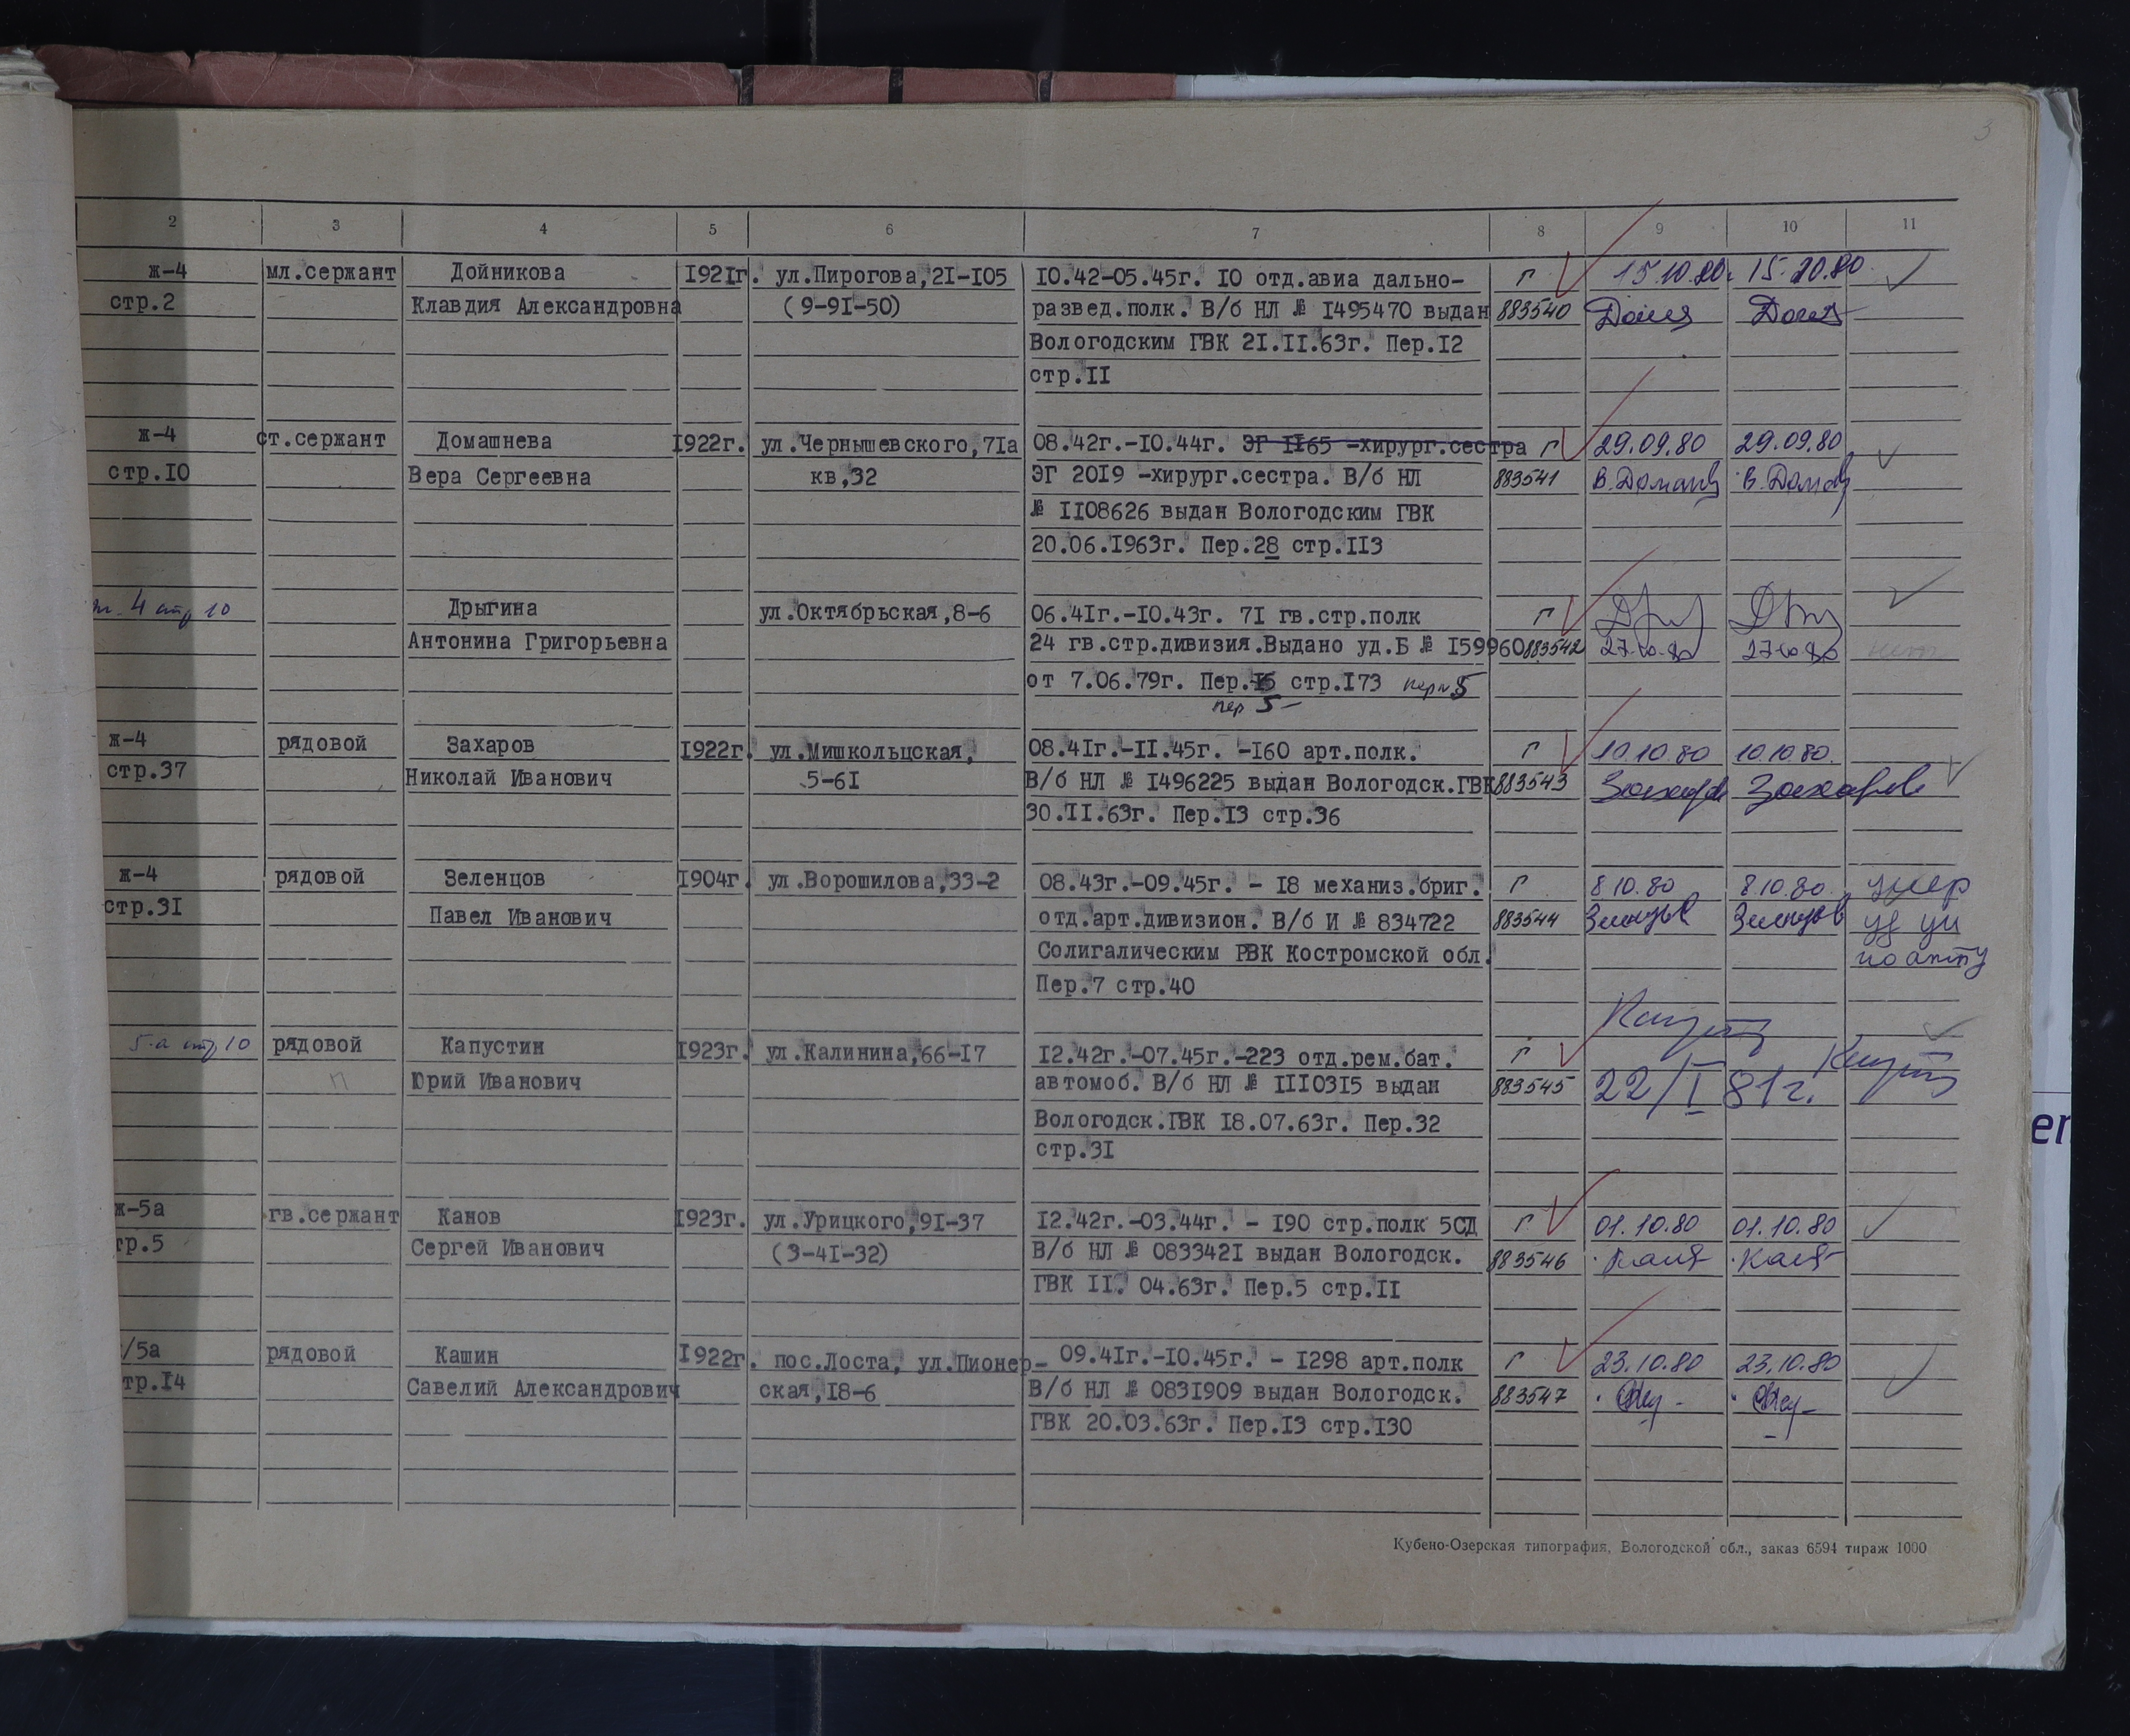 3
2 3 4 5 6 7 8 9 10 11
ж-4 мл.сержант Дойникова 1921г. ул.Пирогова,21-105 10.42-05.45г. 10 отд.авиа дально- г 15.10.80г 15.10.80
стр.2 Клавдия Александровна (9-91-50) развед.полк. В/б НЛ № 1495470 выдан 883540
Вологодским ГВК 21.11.63г. Пер.12
стр.11
ж-4 ст.сержант Домашнева 1922г. ул.Чернышевского,71а 08.42г.-10.44г. ЭГ 1165 -хирург.сестра г 29.09.80 29.09.80
стр.10 Вера Сергеевна кв,32 ЭГ 2019 -хирург.сестра. В/б НЛ 883541
№ 1108626 выдан Вологодским ГВК
20.06.1963г. Пер.28 стр.113
4 стр 10 Дрыгина ул.Октябрьская,8-6 06.41г.-10.43г. 71 гв.стр.полк г
Антонина Григорьевна 24 гв.стр.дивизия.Выдано уд.Б № 159960 883542 27.10.80 27.10.80
от 7.06.79г. Пер.15 стр.173 пер 5
пер 5-
ж-4 рядовой Захаров 1922г. ул.Мишкольцская, 08.41г.-11.45г. -160 арт.полк. г 10.10.80 10.10.80.
стр.37 Николай Иванович 5-61 В/б НЛ № 1496225 выдан Вологодск.ГВК 883543 Захаров Захаров
30.11.63г. Пер.13 стр.36
ж-4 рядовой Зеленцов 1904г. ул.Ворошилова,33-2 08.43г.-09.45г. - 18 механиз.бриг. г 8.10.80 8.10.80 умер
стр.31 Павел Иванович отд.арт.дивизион. В/б И № 834722 883544 Зеленцов Зеленцов
Солигалическим РВК Костромской обл. по акту
Пер.7 стр.40
5-а стр 10 рядовой Капустин 1923г. ул.Калинина,66-17 12.42г.-07.45г.-223 отд.рем.бат. г
п Юрий Иванович автомоб. В/б НЛ № 1110315 выдан 883545 22/I 81г.
Вологодск.ГВК 18.07.63г. Пер.32
стр.31
ж-5а гв.сержант Канов 1923г. ул.Урицкого,91-37 12.42г.-03.44г. - 190 стр.полк 5СД г 01.10.80 01.10.80
тр.5 Сергей Иванович (3-41-32) В/б НЛ № 0833421 выдан Вологодск. 883546
ГВК 11. 04.63г. Пер.5 стр.11
/5а рядовой Кашин 1922г. пос.Лоста, ул.Пионер- 09.41г.-10.45г. - 1298 арт.полк г 23.10.80 23.10.80
тр.14 Савелий Александрович ская,18-6 В/б НЛ № 0831909 выдан Вологодск. 883547
ГВК 20.03.63г. Пер.13 стр.130
Кубено-Озерская типография, Вологодской обл., заказ 6594 тираж 1000